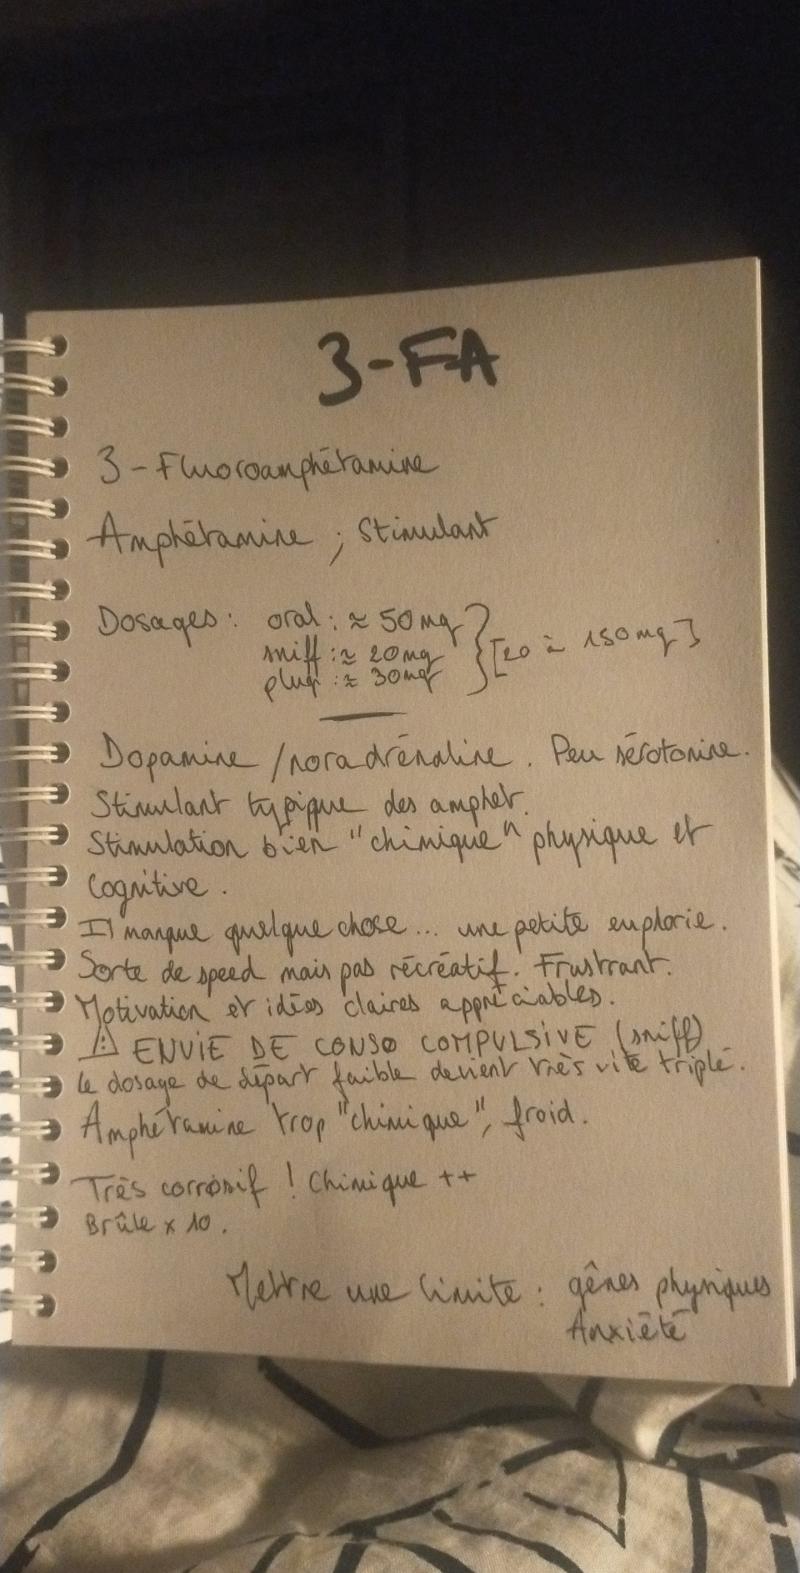 3-FA
3-Fluoroamphétamine
Amphétamine ; Stimulant
Dosages : oral : ≈ 50 mg
sniff : ≈ 20 mg } [20 à 150 mg]
plug : ≈ 30 mg
Dopamine / noradrénaline. Peu sérotonine.
Stimulant typique des amphet.
Stimulation bien "chimique" physique et
cognitive.
Il manque quelque chose... une petite euphorie.
Sorte de speed mais pas récréatif. Frustrant.
Motivation et idées claires appréciables.
⚠ ENVIE DE CONSO COMPULSIVE (sniff)
Le dosage de départ faible devient très vite triplé.
Amphétamine trop "chimique", froid.
Très corrosif ! Chimique ++
Brûle x 10.
Mettre une limite : gênes physiques
Anxiété